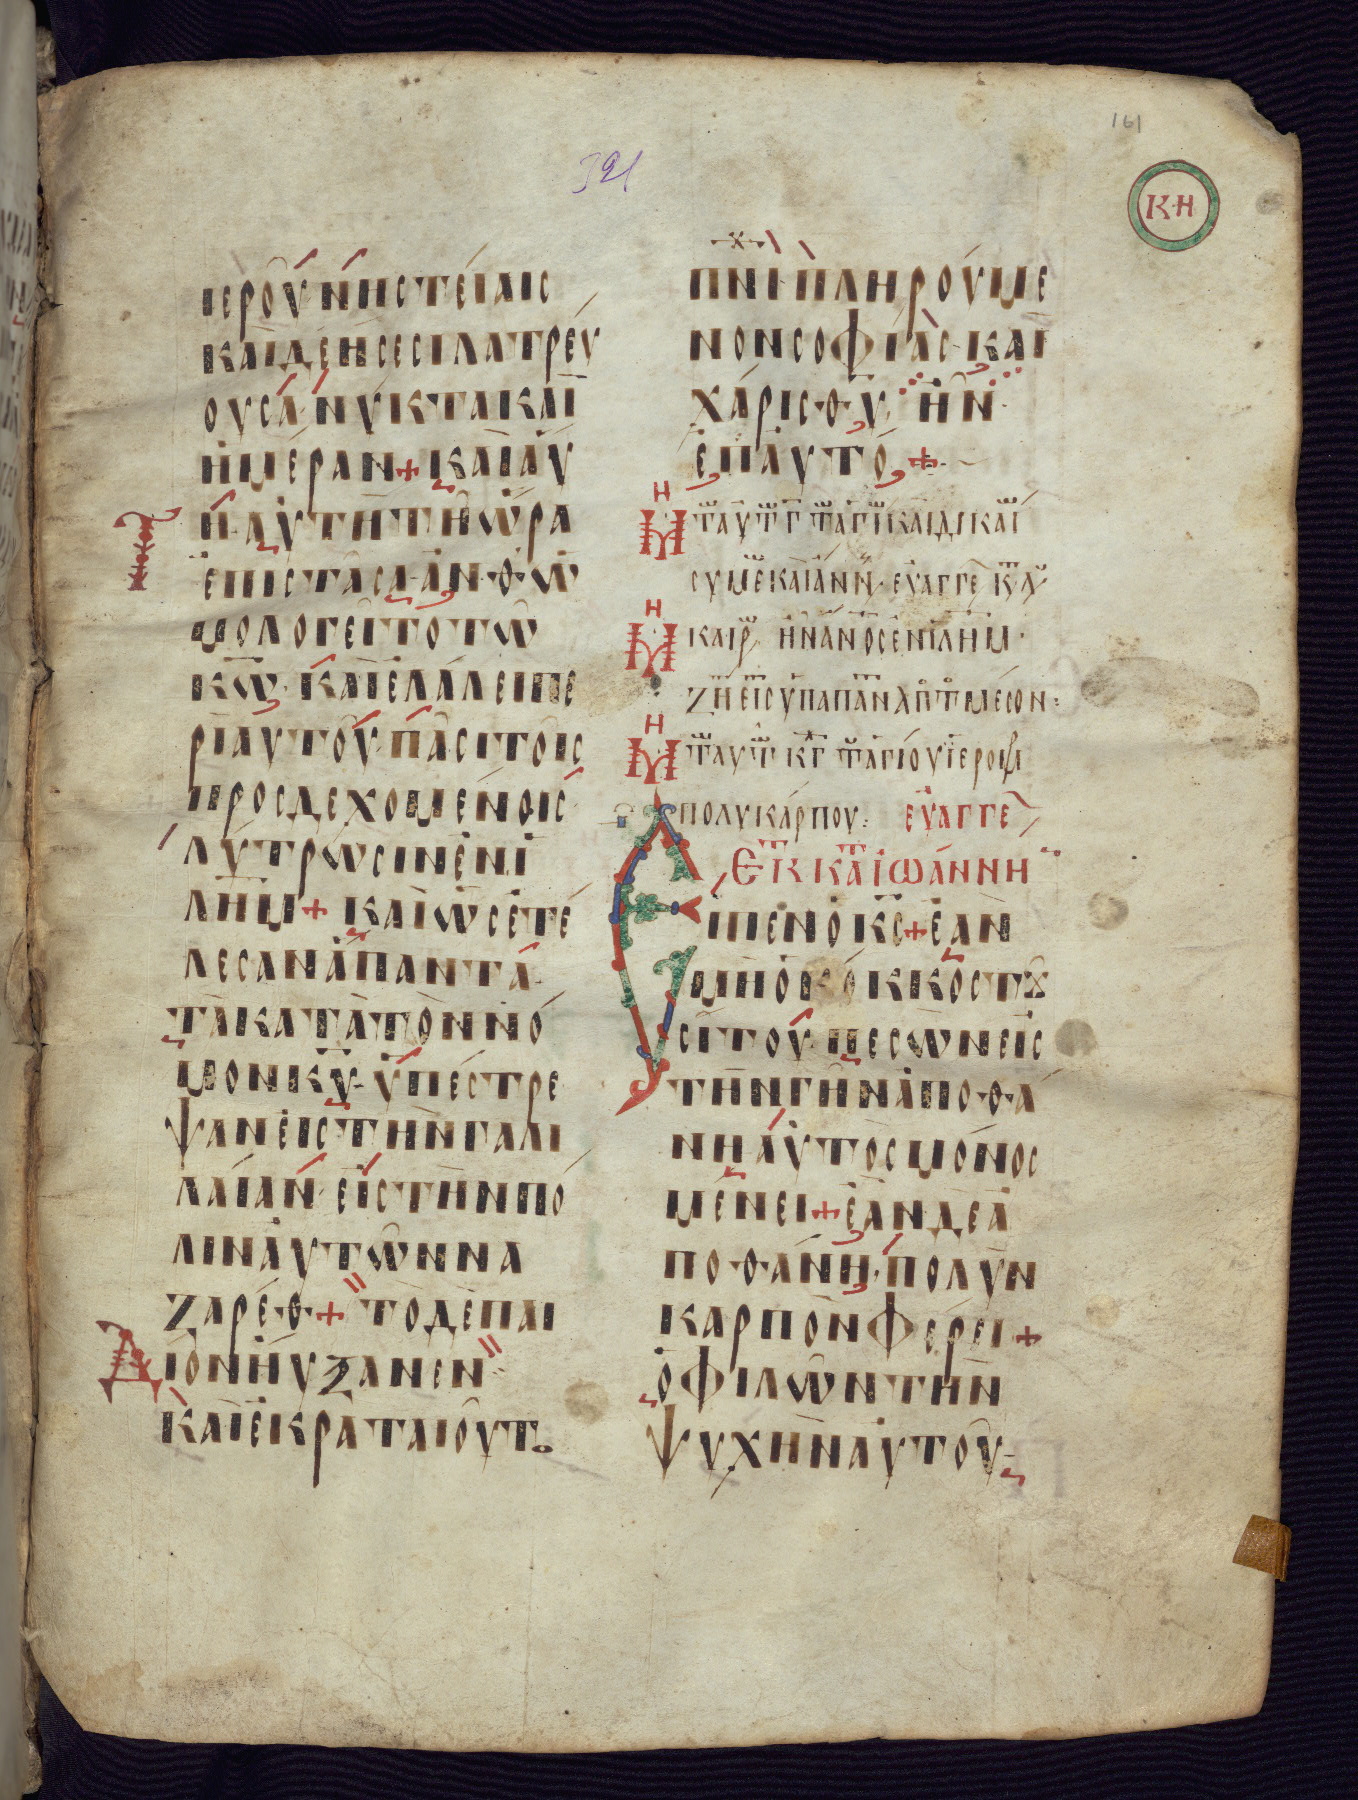 161
391
Κ·Η
ΙΕΡΟΥ· ΝΗΣΤΕΙΑΙΣ
ΚΑΙ ΔΕΗΣΕΣΙ ΛΑΤΡΕΥ
ΟΥΣΑ· ΝΥΚΤΑ ΚΑΙ
ΗΜΕΡΑΝ + ΚΑΙ ΑΥ
Τ Η ΑΥΤΗ ΤΗ ΩΡΑ
ΕΠΙΣΤΑΣΑ· ΑΝΘΩ
ΜΟΛΟΓΕΙΤΟ ΤΩ
ΚΩ· ΚΑΙ ΕΛΑΛΕΙ ΠΕ
ΡΙ ΑΥΤΟΥ· ΠΑΣΙ ΤΟΙΣ
ΠΡΟΣΔΕΧΟΜΕΝΟΙΣ
ΛΥΤΡΩΣΙΝ ΕΝ Ι
ΛΗΜ + ΚΑΙ ΩΣ ΕΤΕ
ΛΕΣΑΝ ΑΠΑΝΤΑ
ΤΑ ΚΑΤΑ ΤΟΝ ΝΟ
ΜΟΝ ΚΥ· ΥΠΕΣΤΡΕ
ΨΑΝ ΕΙΣ ΤΗΝ ΓΑΛΙ
ΛΑΙΑΝ· ΕΙΣ ΤΗΝ ΠΟ
ΛΙΝ ΑΥΤΩΝ ΝΑ
ΖΑΡΕΘ + ΤΟ ΔΕ ΠΑΙ
ΔΙΟΝ ΗΥΞΑΝΕΝ
ΚΑΙ ΕΚΡΑΤΑΙΟΥΤΟ
ΠΝΙ ΠΛΗΡΟΥΜΕ
ΝΟΝ ΣΟΦΙΑΣ· ΚΑΙ
ΧΑΡΙΣ ΘΥ ΗΝ
ΕΠ ΑΥΤΟ +
ΜΗ Τ ΑΥΤ Γ Τ ΑΓΙ ΚΑΙ ΔΙΚΑΙ
ΣΥΜΕ ΚΑΙ ΑΝΝ· ΕΥΑΓΓΕ Κ Λ
ΜΗ ΚΑΙΡ ΗΝ ΑΝΟΣ ΕΝ ΙΛΗΜ·
ΖΗ ΕΙΣ ΥΠΑΠΑΝ ΑΠ Τ ΜΕΣΟΝ:
ΜΗ Τ ΑΥΤ ΚΓ Τ ΑΓΙΟΥ ΙΕΡΟΜ
ΠΟΛΥΚΑΡΠΟΥ: ΕΥΑΓΓΕ
ΕΚ Κ ΙΩΑΝΝΗ
ΕΙΠΕΝ Ο ΚΣ + ΕΑΝ
ΜΗ Ο ΚΟΚΚΟΣ ΤΟΥ
ΣΙΤΟΥ· ΠΕΣΩΝ ΕΙΣ
ΤΗΝ ΓΗΝ ΑΠΟΘΑ
ΝΗ ΑΥΤΟΣ ΜΟΝΟΣ
ΜΕΝΕΙ + ΕΑΝ ΔΕ Α
ΠΟΘΑΝΗ· ΠΟΛΥΝ
ΚΑΡΠΟΝ ΦΕΡΕΙ +
Ο ΦΙΛΩΝ ΤΗΝ
ΨΥΧΗΝ ΑΥΤΟΥ